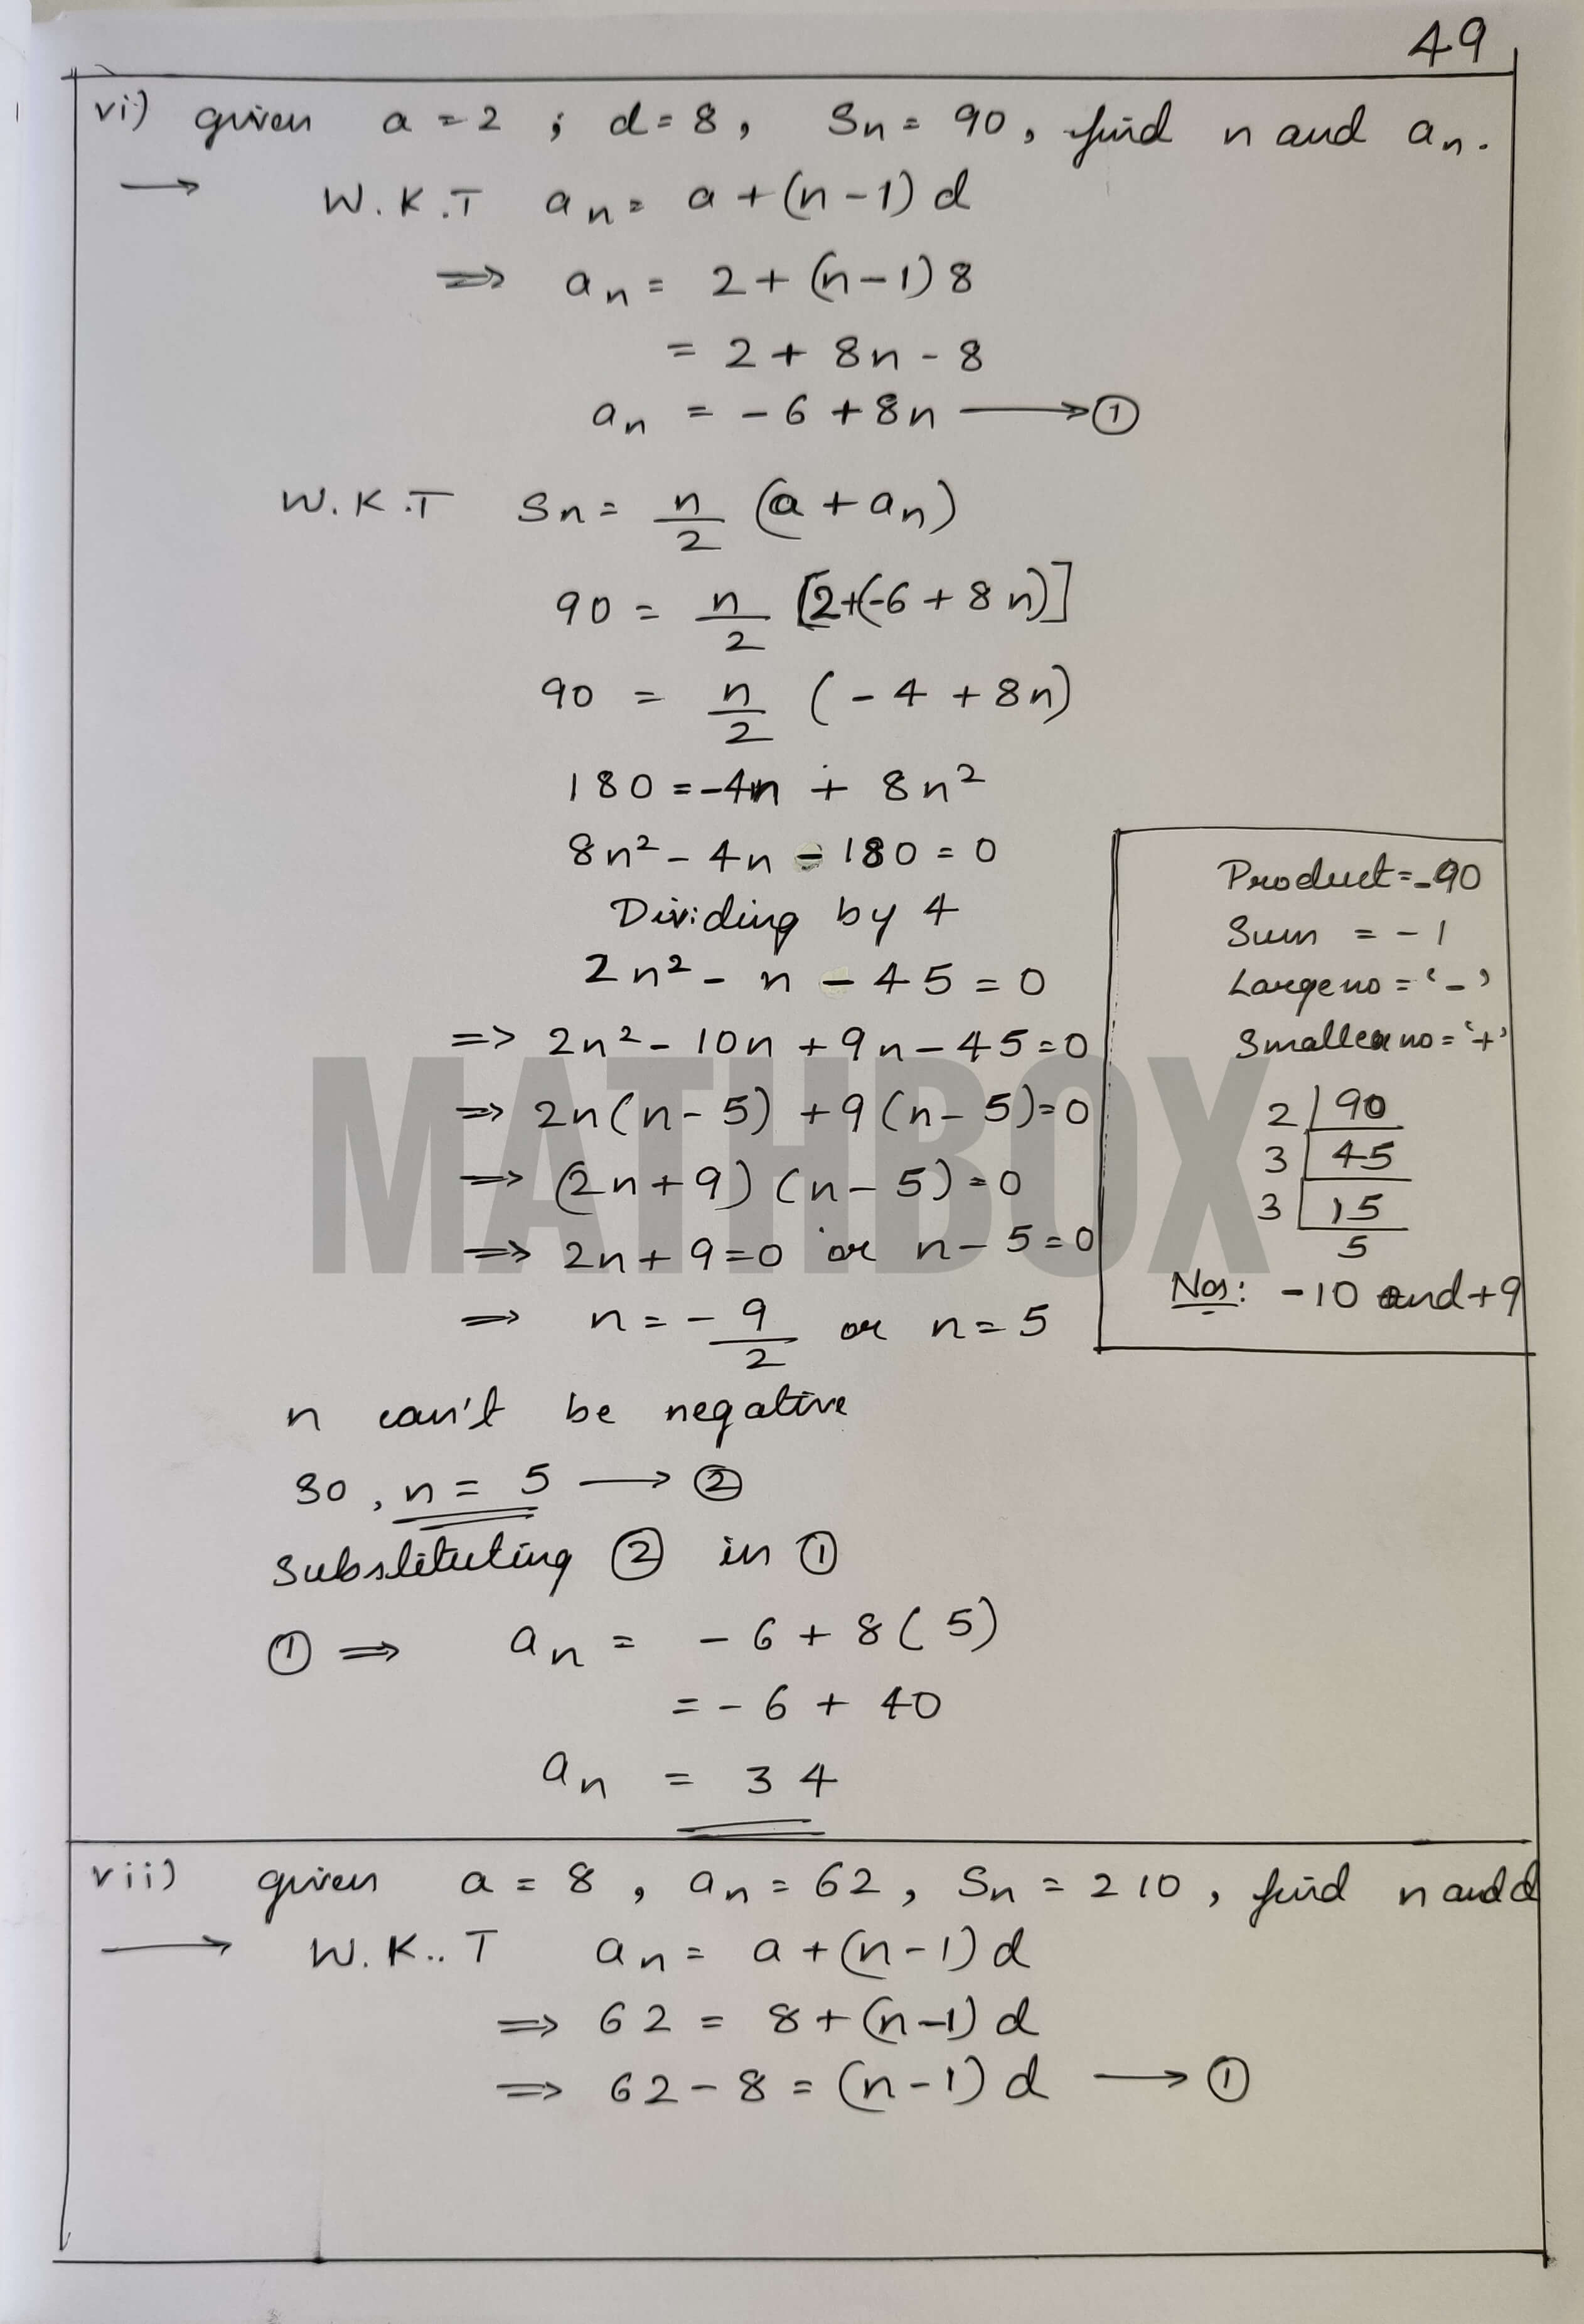 49
vi) given a = 2 ; d = 8, Sn = 90, find n and an.
→ W.K.T an = a + (n-1) d
⇒ an = 2 + (n-1) 8
= 2 + 8n - 8
an = -6 + 8n ⟶ ①
W.K.T Sn = n/2 (a + an)
90 = n/2 [2+(-6 + 8n)]
90 = n/2 (-4 + 8n)
180 = -4n + 8n²
8n² - 4n - 180 = 0
Dividing by 4
2n² - n - 45 = 0
⇒ 2n² - 10n + 9n - 45 = 0
⇒ 2n(n-5) + 9(n-5) = 0
⇒ (2n+9) (n-5) = 0
⇒ 2n + 9 = 0 or n - 5 = 0
⇒ n = -9/2 or n = 5
Product = -90
Sum = -1
Large no = '-'
Smaller no = '+'
2 | 90
3 | 45
3 | 15
5
Nos: -10 and +9
n can't be negative
So, n = 5 ⟶ ②
Substituting ② in ①
① ⇒ an = -6 + 8(5)
= -6 + 40
an = 34
vii) given a = 8, an = 62, Sn = 210, find n and d
→ W.K..T an = a + (n-1) d
⇒ 62 = 8 + (n-1) d
⇒ 62 - 8 = (n-1) d ⟶ ①
MATHBOX